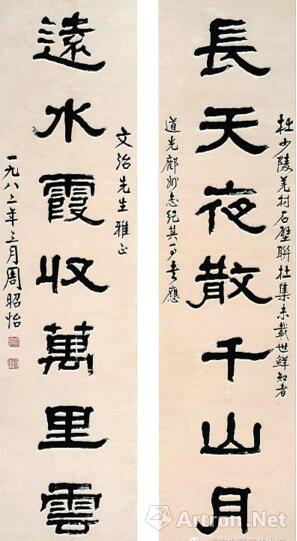 長天夜散千山月
杜少陵羌村石壁聯杜集未載世鮮知者
道光鄜州志紀其書應
遠水霞收萬里雲
文治先生雅正
一九八二年三月周昭怡
Artron.Net